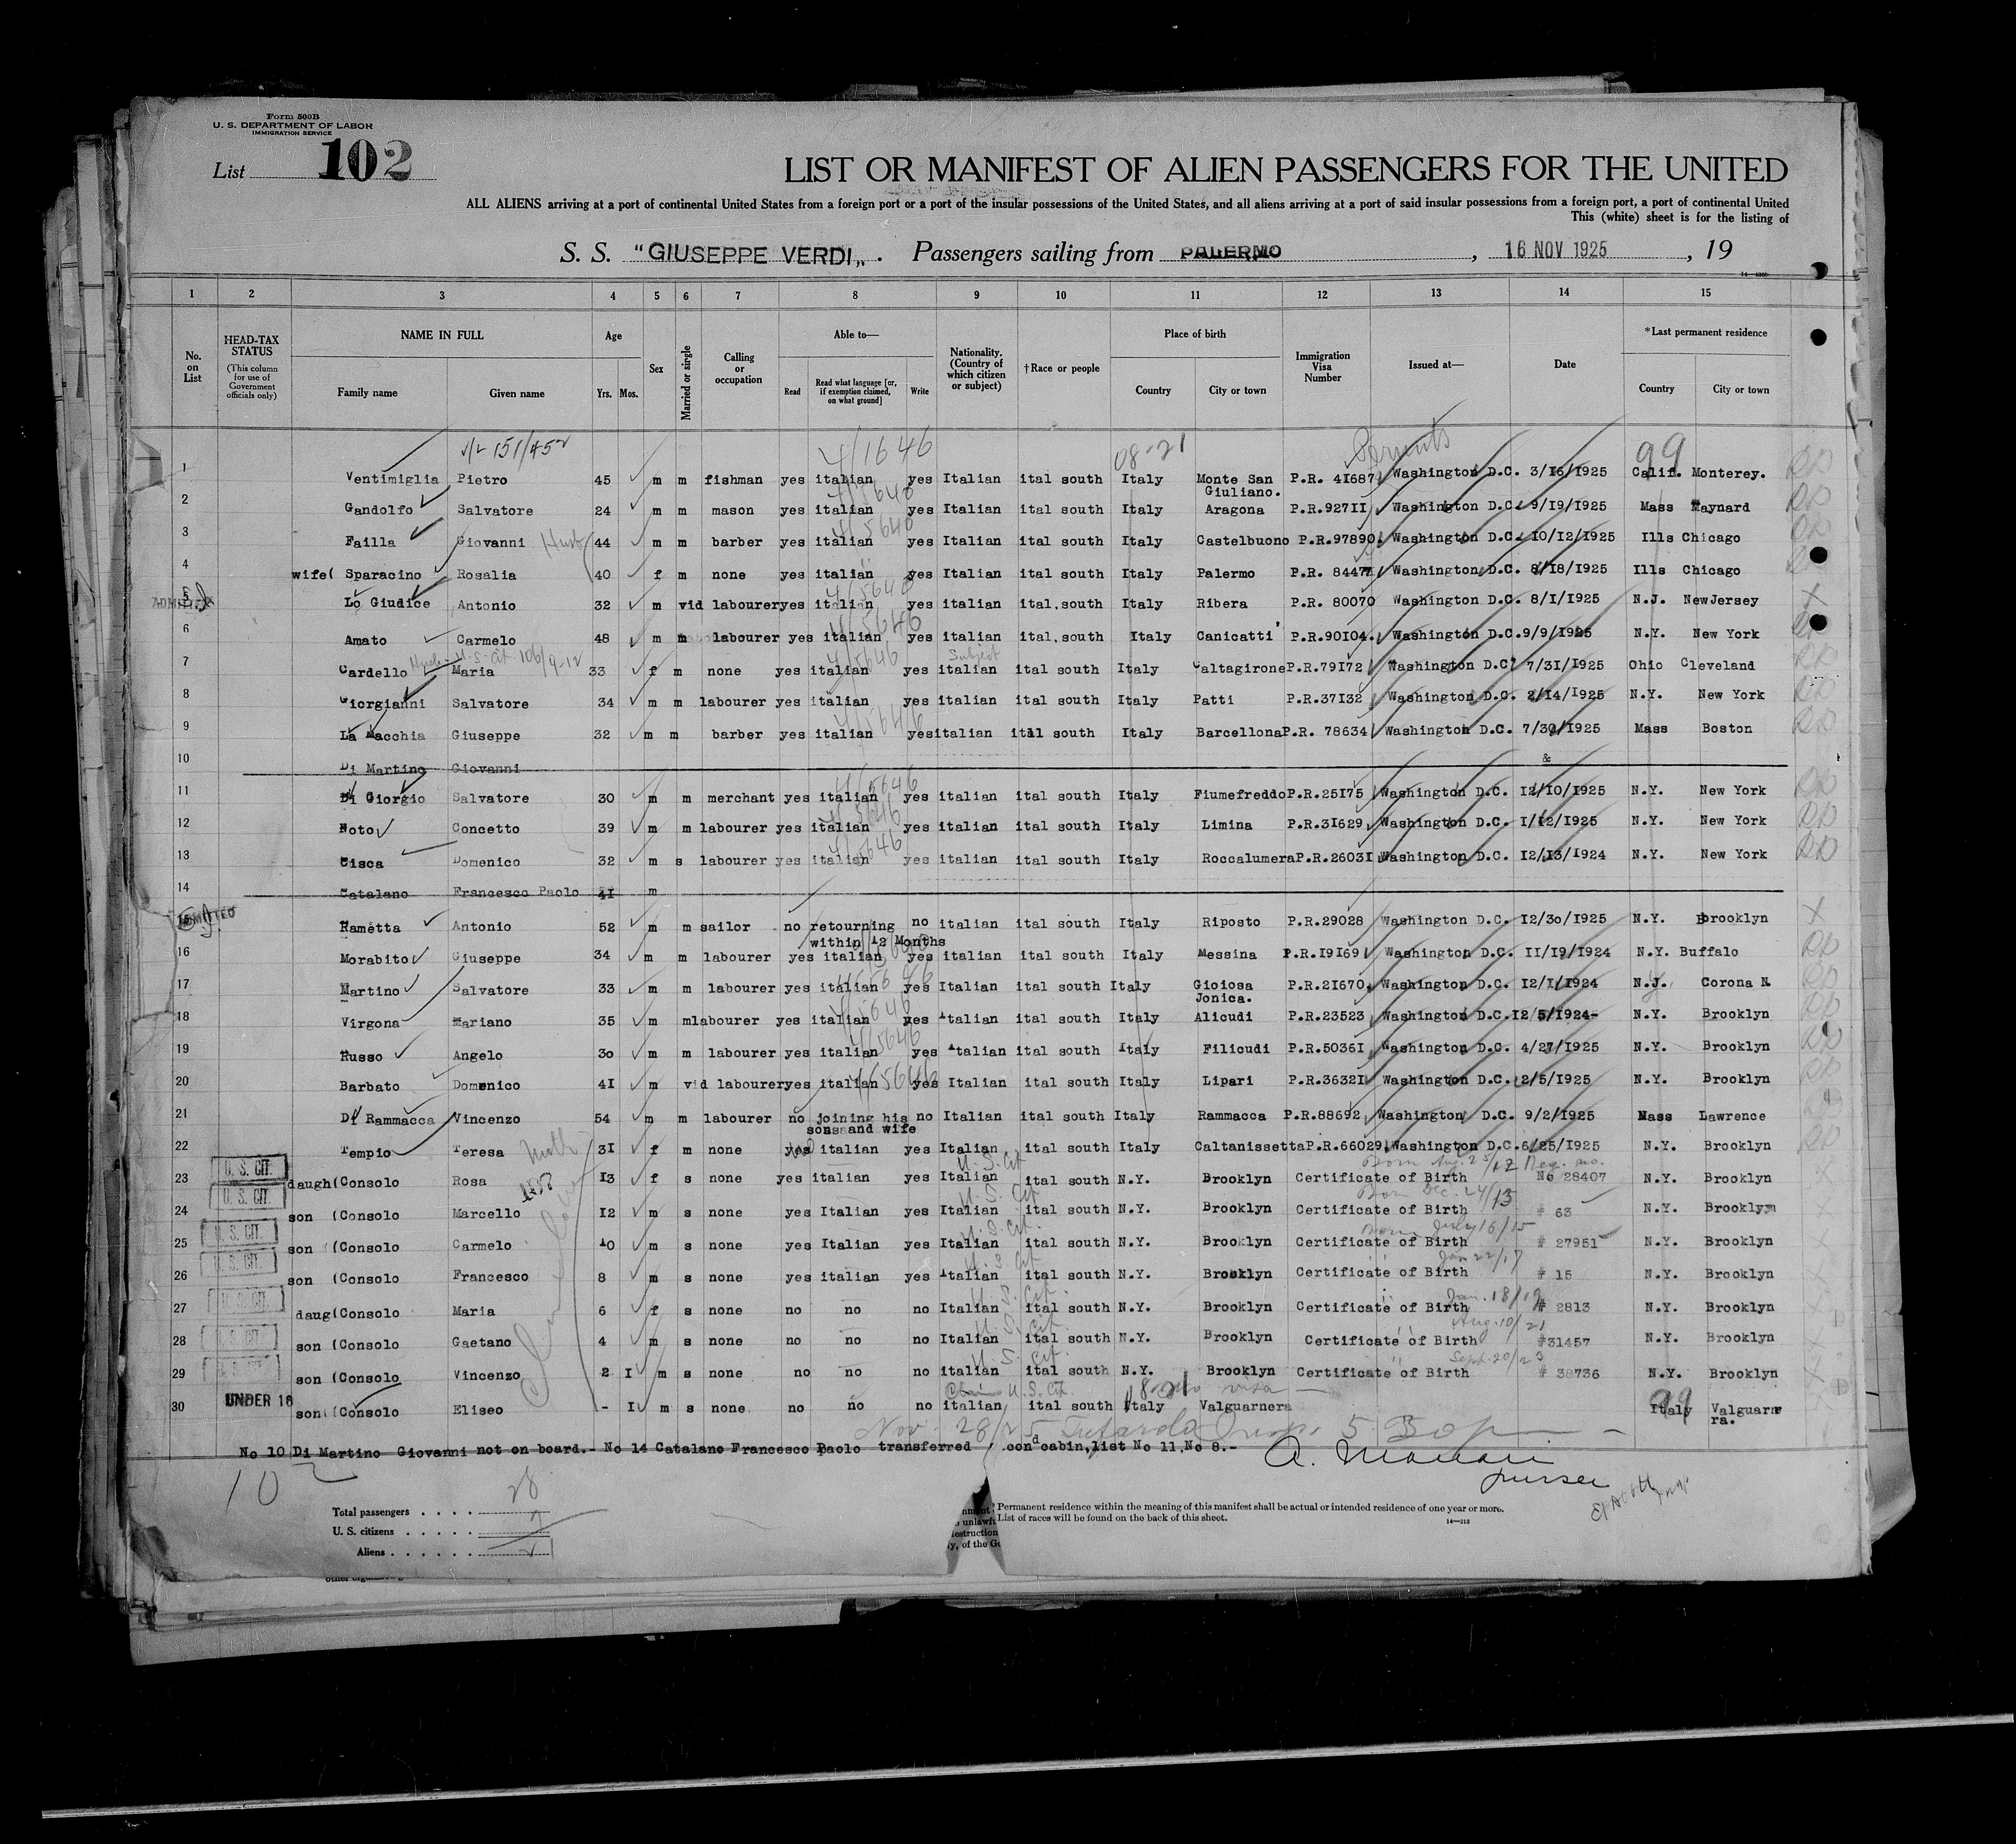 Form 500B
U. S. DEPARTMENT OF LABOR
IMMIGRATION SERVICE
List 102
LIST OR MANIFEST OF ALIEN PASSENGERS FOR THE UNITED
ALL ALIENS arriving at a port of continental United States from a foreign port or a port of the insular possessions of the United States, and all aliens arriving at a port of said insular possessions from a foreign port, a port of continental United
This (white) sheet is for the listing of
S. S. "GIUSEPPE VERDI„ . Passengers sailing from PALERMO , 16 NOV 1925 , 19
1 2 3 4 5 6 7 8 9 10 11 12 13 14 15
No. on List HEAD-TAX STATUS (This column for use of Government officials only) NAME IN FULL Family name Given name Age Yrs. Mos. Sex Married or single Calling or occupation Able to— Read Read what language [or, if exemption claimed, on what ground] Write Nationality. (Country of which citizen or subject) †Race or people Place of birth Country City or town Immigration Visa Number Issued at— Date *Last permanent residence Country City or town
4/1646 08-21 Permits 99
1 Ventimiglia Pietro 45 m m fishman yes italian yes Italian ital south Italy Monte San Giuliano. P.R. 41687 Washington D.C. 3/16/1925 Calif. Monterey.
2 Gandolfo Salvatore 24 m m mason yes italian yes Italian ital south Italy Aragona P.R.92711 Washington D.C. 9/19/1925 Mass Maynard
3 Failla Giovanni Husb 44 m m barber yes italian yes Italian ital south Italy Castelbuono P.R.97890. Washington D.C. 10/12/1925 Ills Chicago
4 wife( Sparacino Rosalia 40 f m none yes italian yes Italian ital south Italy Palermo P.R. 84471 Washington D.C. 8/18/1925 Ills Chicago
ADMITTED 5 Lo Giudice Antonio 32 m vid labourer yes italian yes italian ital.south Italy Ribera P.R. 80070 Washington D.C. 8/1/1925 N.J. NewJersey
6 Amato Carmelo 48 m m labourer yes italian yes italian ital.south Italy Canicatti' P.R.90104. Washington D.C. 9/9/1925 N.Y. New York
7 Cardello Maria 33 f m none yes italian yes italian ital south Italy Caltagirone P.R.79172 Washington D.C. 7/31/1925 Ohio Cleveland
8 Giorgianni Salvatore 34 m m labourer yes italian yes italian ital south Italy Patti P.R.37132 Washington D.C. 2/14/1925 N.Y. New York
9 La Macchia Giuseppe 32 m m barber yes italian yes italian ital south Italy Barcellona P.R. 78634 Washington D.C. 7/30/1925 Mass Boston
10 Di Martino Giovanni &
11 Di Giorgio Salvatore 30 m m merchant yes italian yes italian ital south Italy Fiumefreddo P.R.25175 Washington D.C. 12/10/1925 N.Y. New York
12 Noto Concetto 39 m m labourer yes italian yes italian ital south Italy Limina P.R.31629. Washington D.C. 1/12/1925 N.Y. New York
13 Cisca Domenico 32 m s labourer yes italian yes italian ital south Italy Roccalumera P.R.26031 Washington D.C. 12/13/1924 N.Y. New York
14 Catalano Francesco Paolo 41 m
ADMITTED Rametta Antonio 52 m m sailor no retourning within 12 Months no italian ital south Italy Riposto P.R.29028 Washington D.C. 12/30/1925 N.Y. Brooklyn
16 Morabito Giuseppe 34 m m labourer yes italian yes italian ital south Italy Messina P.R.19169 Washington D.C. 11/19/1924 N.Y. Buffalo
17 Martino Salvatore 33 m m labourer yes italian yes Italian ital south Italy Gioiosa Jonica. P.R.21670. Washington D.C. 12/1/1924 N.J. Corona N
18 Virgona Mariano 35 m m labourer yes italian yes Italian ital south Italy Alicudi P.R.23523 Washington D.C. 12 5/1924- N.Y. Brooklyn
19 Russo Angelo 30 m m labourer yes italian yes Italian ital south Italy Filicudi P.R.50361 Washington D.C. 4/27/1925 N.Y. Brooklyn
20 Barbato Domenico 41 m vid labourer yes italian yes Italian ital south Italy Lipari P.R.36321 Washington D.C. 2/5/1925 N.Y. Brooklyn
21 Di Rammacca Vincenzo 54 m m labourer no joining his sons and wife no Italian ital south Italy Rammacca P.R.88692 Washington D.C. 9/2/1925 Mass Lawrence
22 Tempio Teresa 31 f m none yes italian yes Italian ital south Italy Caltanissetta P.R.66029. Washington D.C. 6/25/1925 N.Y. Brooklyn
U. S. CIT. 23 daugh(Consolo Rosa 13 f s none yes italian yes Italian U. S. Cit ital south N.Y. Brooklyn Certificate of Birth Born Aug. 25/12 Reg. no. No 28407 N.Y. Brooklyn
U. S. CIT. 24 son (Consolo Marcello 12 m s none yes Italian yes Italian U. S. Cit. ital south N.Y. Brooklyn Certificate of Birth Born Dec. 24/13 # 63 N.Y. Brooklyn
U. S. CIT. 25 son (Consolo Carmelo 10 m s none yes Italian yes Italian U. S. Cit. ital south N.Y. Brooklyn Certificate of Birth Born July 16/15 # 27951 N.Y. Brooklyn
U. S. CIT. 26 son (Consolo Francesco 8 m s none yes italian yes Italian U. S. Cit ital south N.Y. Brooklyn Certificate of Birth Jan 22/17 # 15 N.Y. Brooklyn
U. S. CIT. 27 daug(Consolo Maria 6 f s none no no no Italian U. S. Cit. ital south N.Y. Brooklyn Certificate of Birth Jan. 18/19 # 2813 N.Y. Brooklyn
28 son (Consolo Gaetano 4 m s none no no no Italian U. S. Cit. ital south N.Y. Brooklyn Certificate of Birth Aug. 10/21 #31457 N.Y. Brooklyn
29 son (Consolo Vincenzo 2 1 m s none no no no italian U. S. Cit. ital south N.Y. Brooklyn Certificate of Birth Sept. 20/23 # 38736 N.Y. Brooklyn
UNDER 16 30 son( (Consolo Eliseo - 1 m s none no no no italian ital south Italy Valguarnera no visa 99 Italy Valguarnera.
Nov 28/25
No 10 Di Martino Giovanni not on board.- No 14 Catalano Francesco Paolo transferred cond cabin,list No 11,No 8.-
purser
10
Total passengers . . . . 28
U. S. citizens . . . . . 7
Aliens . . . . . . 21
Permanent residence within the meaning of this manifest shall be actual or intended residence of one year or more.
List of races will be found on the back of this sheet.
14—213